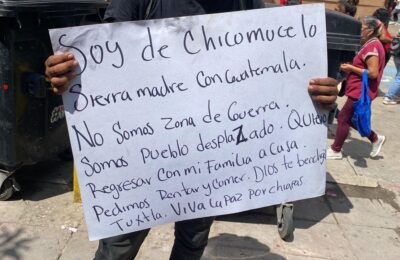 Soy de Chicomucelo
Sierra madre con Guatemala.
No Somos Zona de Guerra.
Somos Pueblo desplaZado. Quiero
Regresar con mi Familia a casa.
Pedimos Rentar y comer. DIOS te bendiga
Tuxtla. VIVA La PAZ Por chiapas